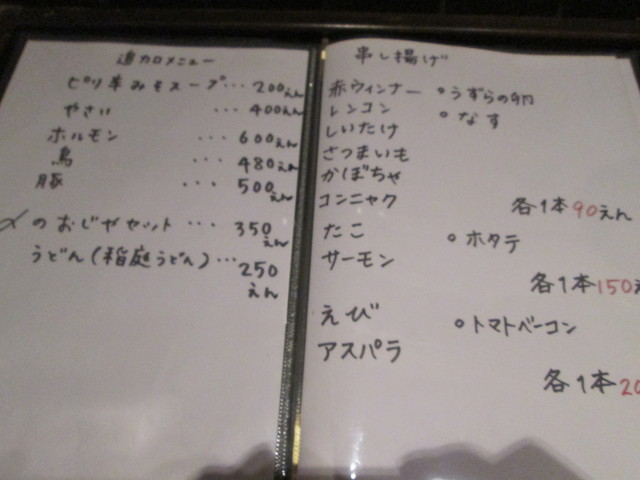 追加メニュー
ピリ辛みそスープ… 200えん
やさい … 400えん
ホルモン … 600えん
鳥 … 480えん
豚 … 500えん
〆のおじやセット … 350えん
うどん(稲庭うどん)… 250えん
串し揚げ
赤ウィンナー ○うずらの卵
レンコン ○なす
しいたけ
さつまいも
かぼちゃ
コンニャク
各1本90えん
たこ ○ホタテ
サーモン
各1本150え
えび ○トマトベーコン
アスパラ
各1本20